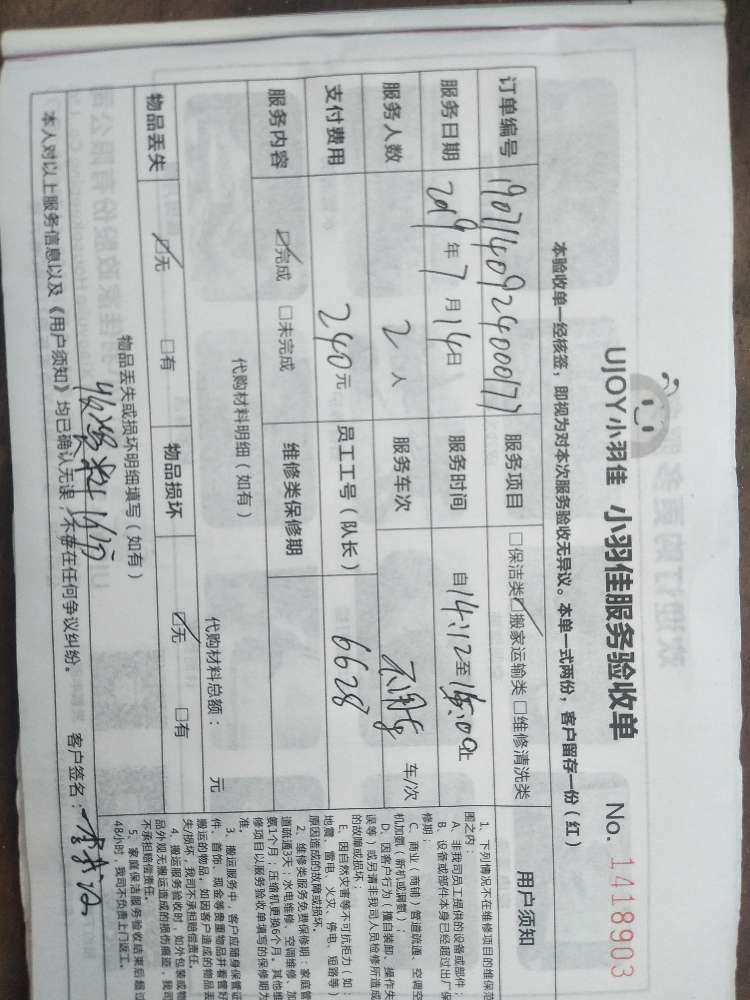 UJOY小羽佳 小羽佳服务验收单 No. 1418903
本验收单一经核签，即视为对本次服务验收无异议。本单一式两份，客户留存一份（红）
订单编号 19071409240000177 服务项目 □保洁类☑搬家运输类 □维修清洗类
服务日期 2019年7月14日 服务时间 自14:12至15:09止
服务人数 2人 服务车次 车/次
支付费用 240元 员工工号（队长） 6628
服务内容 ☑完成 □未完成 维修类保修期
代购材料明细（如有） 代购材料总额： 元
物品丢失 ☑无 □有 物品损坏 ☑无 □有
物品丢失或损坏明细填写（如有）
本人对以上服务信息以及《用户须知》均已确认无误，不存在任何争议纠纷。 客户签名：
用户须知
1、下列情况不在维修项目的维保范
围之内：
A、非我司员工提供的设备或部件；
B、设备或部件本身已经超过出厂保
修期；
C、商业（商铺）管道疏通、空调空
机加氨（新机或漏氨）；
D、因客户行为（擅自装卸、操作失
误等）或另请非我司人员检修所造成
的故障或损坏；
E、因自然灾害等不可抗拒力（如：
地震、雷电、火灾、停电、短路等）
原因造成的故障或损坏。
2、维修类服务免费保修期：家庭管
道疏通3天；水电维修、空调维修、加
氨1个月；压缩机更换6个月。其他维
修项目以服务验收单填写的保修期为
准。
3、搬运服务中，客户应随身保管证
件、首饰、现金等贵重物品并看管好
搬运的物品。如因客户造成的物品丢
失/损坏，我司不承担赔偿责任。
4、搬运服务验收时，如外包装或物
品外观无搬运造成的损伤痕迹，我司
不承担赔偿责任。
5、家庭保洁服务验收结束后超过
48小时，我司不负责上门返工。